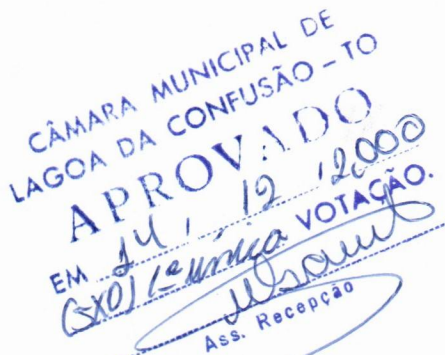 CÂMARA MUNICIPAL DE
LAGOA DA CONFUSÃO - TO
APROVADO
EM 14 / 12 / 2.000
(5X0) 1ª única VOTAÇÃO.
Ass. Recepção